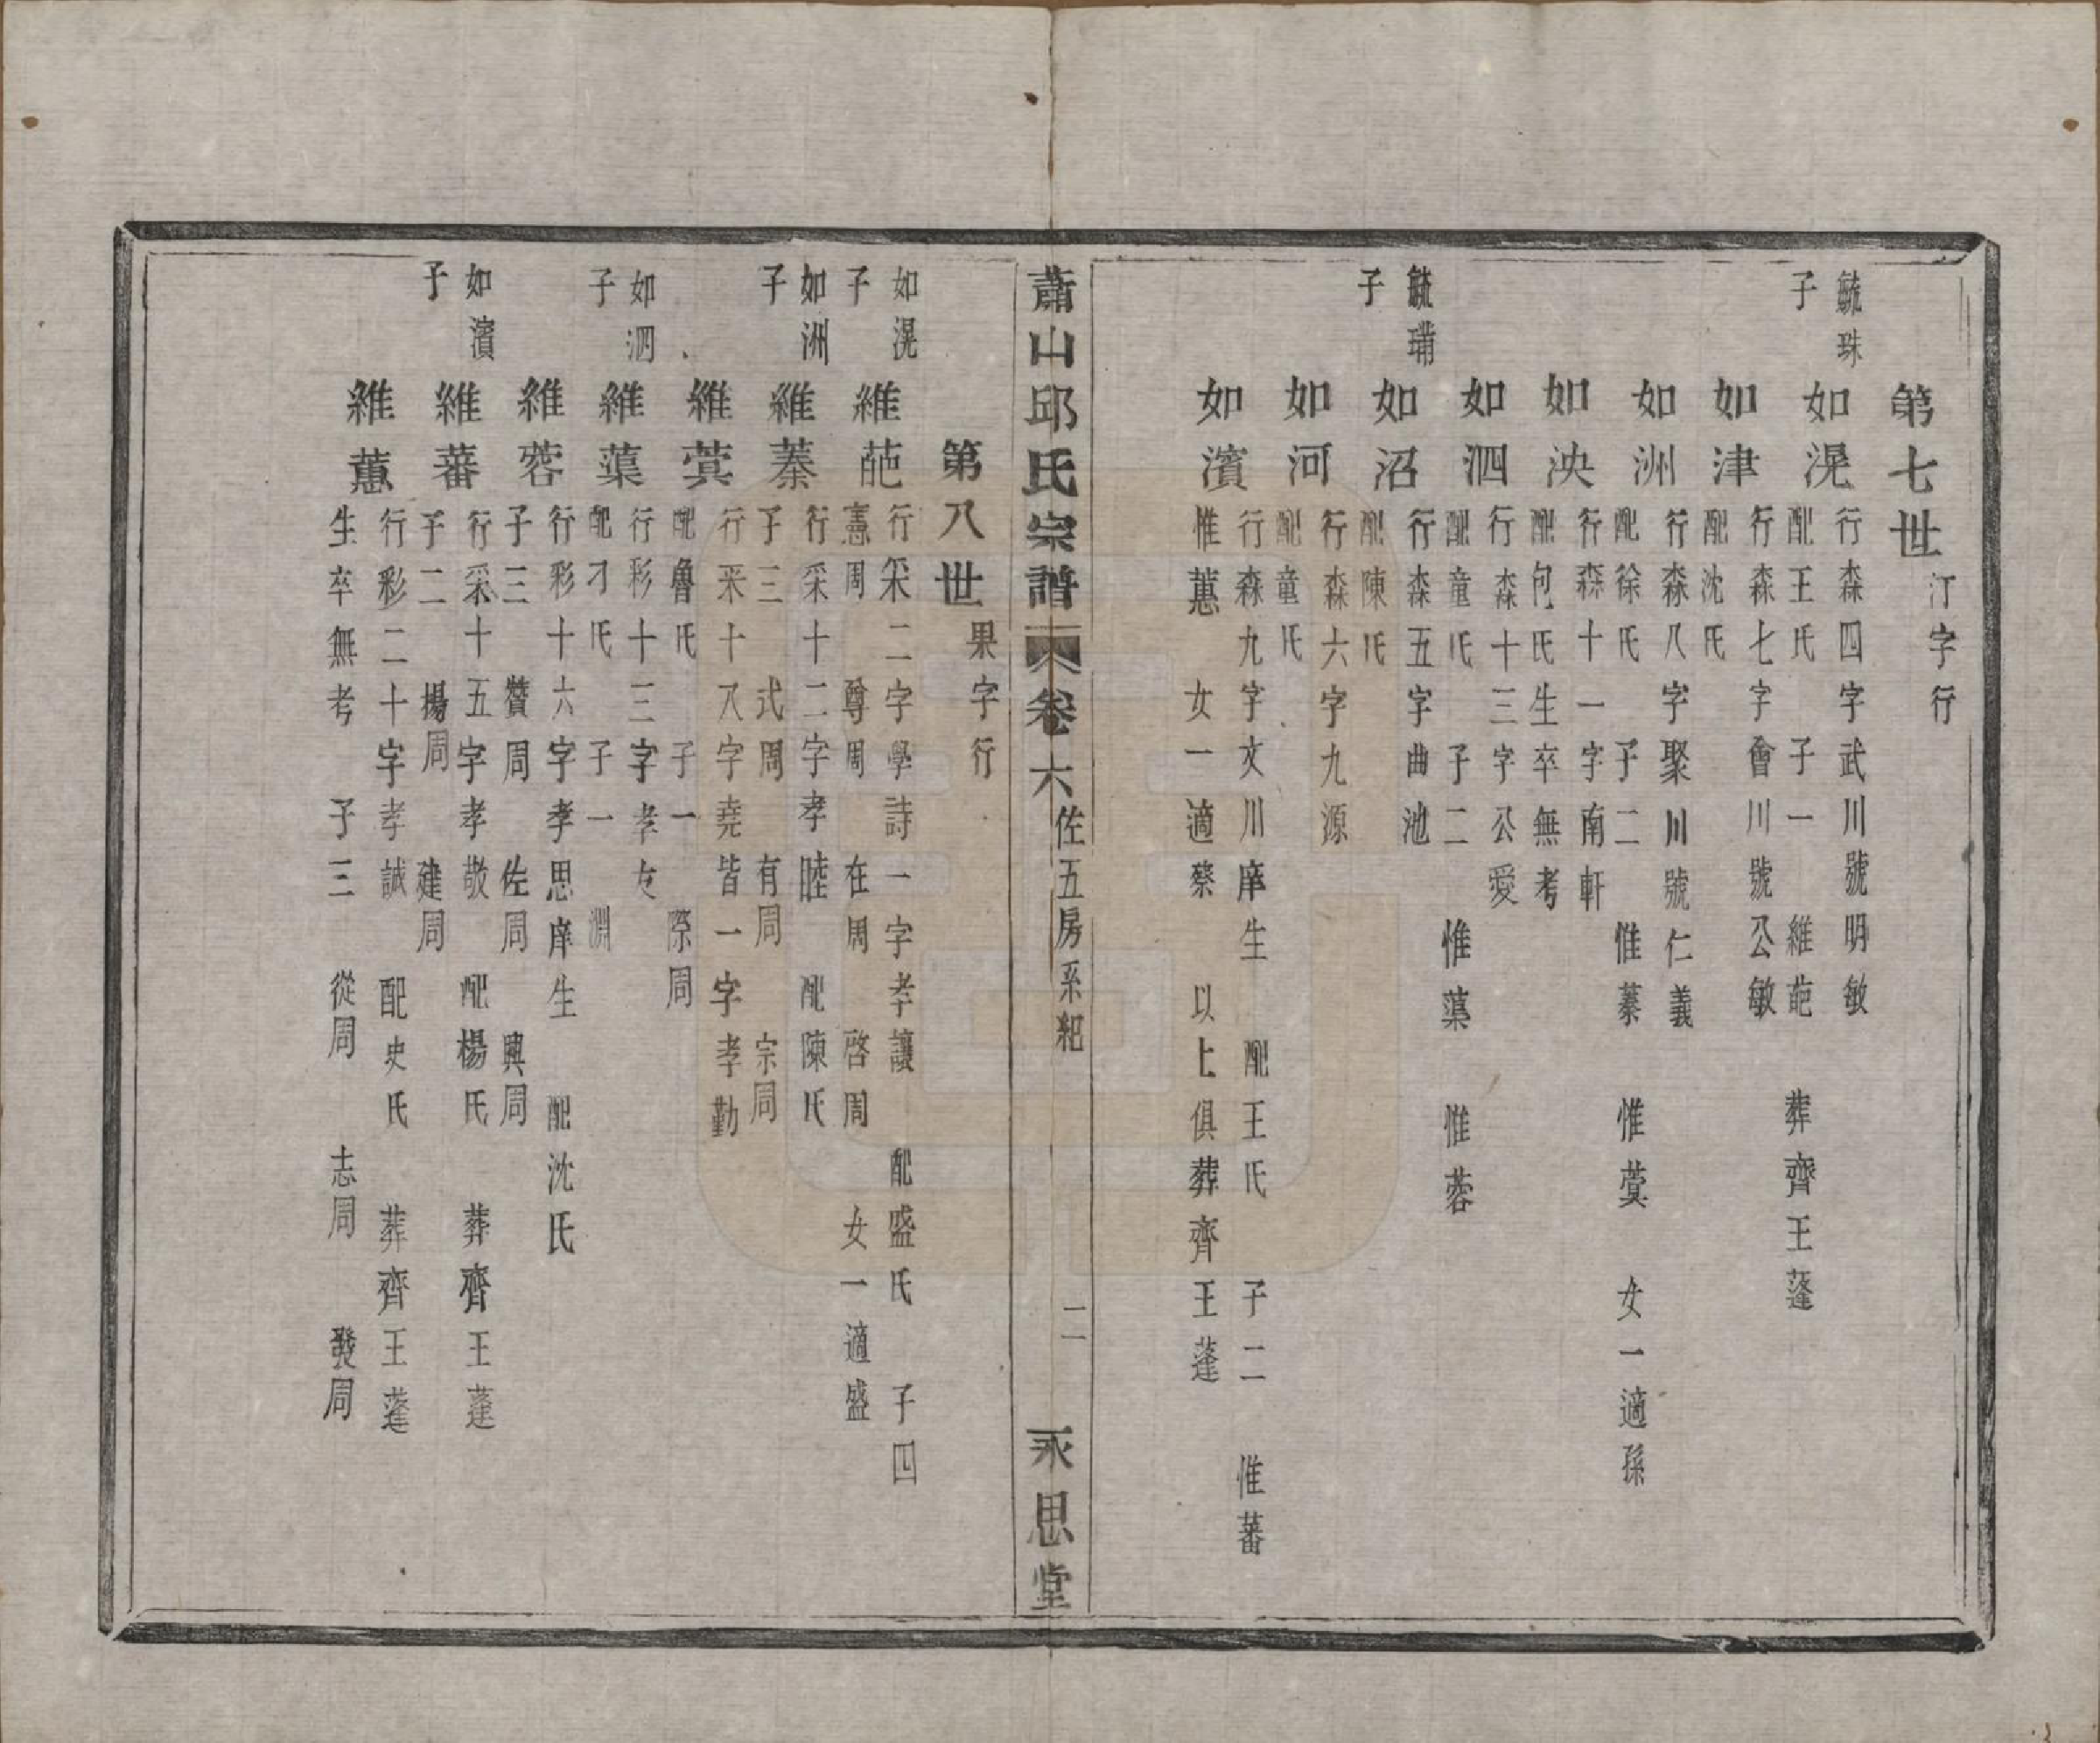 第七世 汀字行
毓珠子
如滉 行森四字武川號明敏
配王氏 子一 維葩 葬齊王蓬
如津 行森七字會川號公敏
配沈氏
如洲 行森八字聚川號仁義
配徐氏 子二 惟蓁 惟蓂 女一適孫
如泱 行森十一字南軒
配包氏生卒無考
如泗 行森十三字公愛
配童氏 子二 惟蕖 惟蓉
毓瑃子
如沼 行森五字曲池
配陳氏
如河 行森六字九源
配童氏
如濱 行森九字文川庠生 配王氏 子二 惟蕃
惟蕙 女一適蔡 以上俱葬齊王蓬
蕭山邱氏宗譜 卷六 佐五房系紀 二 永思堂
第八世 果字行
如滉子
維葩 行采二字學詩一字孝讓 配盛氏 子四
憲周 尊周 在周 啓周 女一適盛
如洲子
維蓁 行采十二字孝睦 配陳氏
子三 式周 有周 宗周
維蓂 行采十八字堯皆一字孝勤
配魯氏 子一 際周
如泗子
維蕖 行彩十三字孝友
配刁氏 子一 淵
維蓉 行彩十六字孝思庠生 配沈氏
子三 贊周 佐周 興周
如濱子
維蕃 行采十五字孝敬 配楊氏 葬齊王蓬
子二 揚周 建周
維蕙 行彩二十字孝誠 配史氏 葬齊王蓬
生卒無考 子三 從周 志周 發周